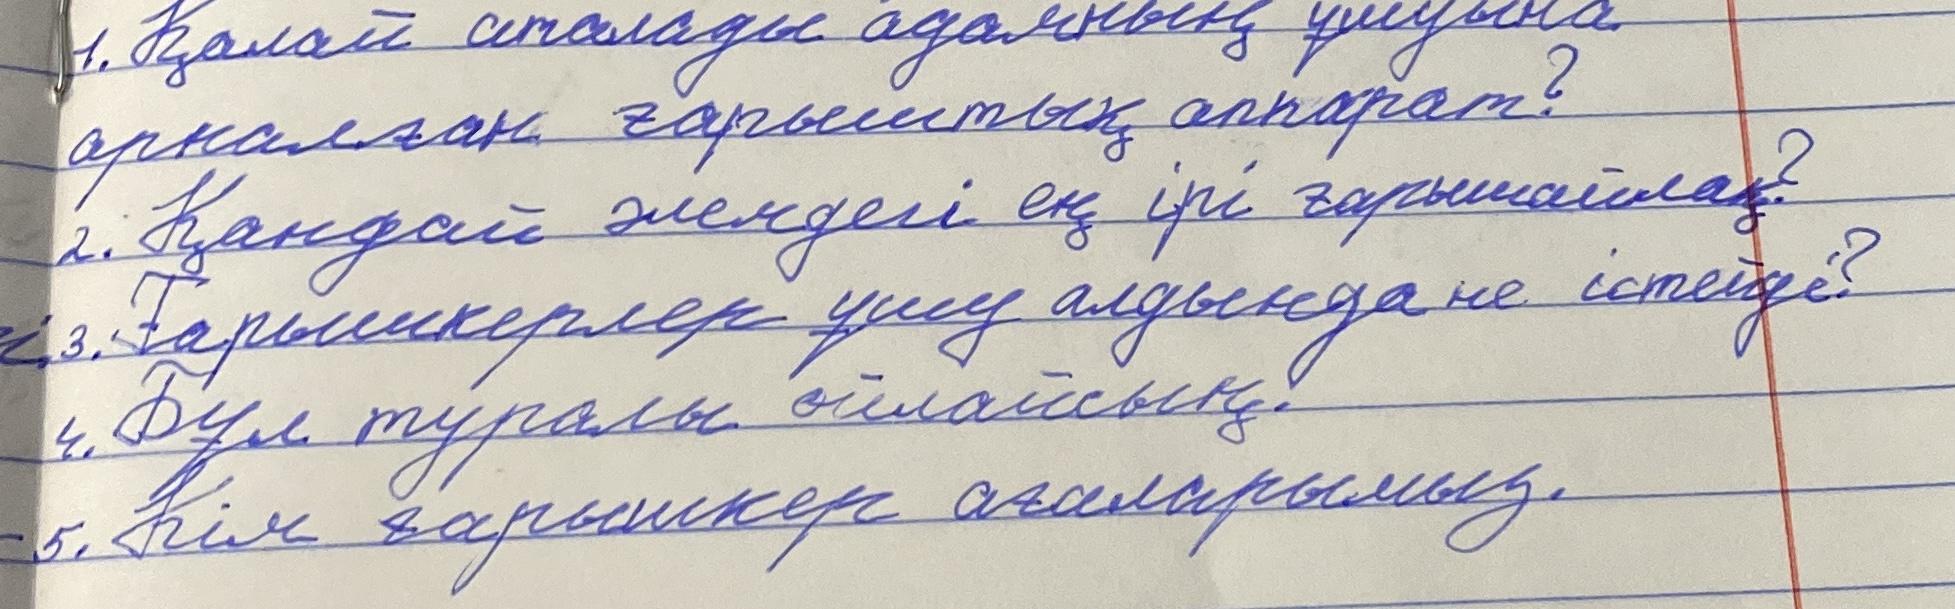 1. Қалай аталады адамның ұшуына
арналған ғарыштық аппарат?
2. Қандай әлемдегі ең ірі ғарышайлақ?
3. Ғарышкерлер ұшу алдында не істейді?
4. Бұл туралы ойлайсың.
5. Кім ғарышкер ағаларымыз.